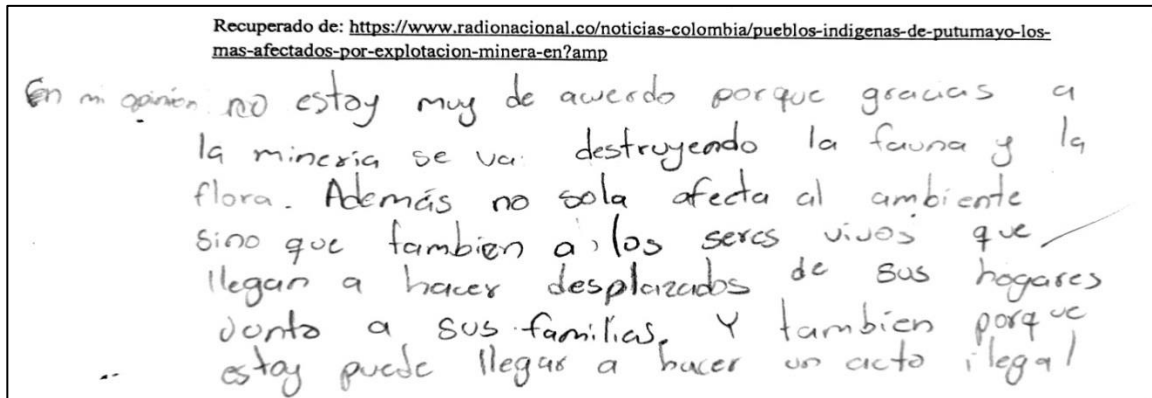 Recuperado de: https://www.radionacional.co/noticias-colombia/pueblos-indigenas-de-putumayo-los-
mas-afectados-por-explotacion-minera-en?amp
En mi opinión no estoy muy de acuerdo porque gracias a
la minería se va destruyendo la fauna y la
flora. Además no sola afecta al ambiente
sino que tambien a los seres vivos que
llegan a hacer desplazados de sus hogares
Junto a sus familias. Y tambien porque
estoy puede llegar a hacer un acto ilegal